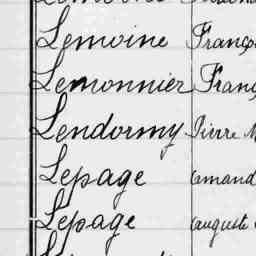 Lemoine Franço
Lemonnier Franç
Lendormy Pierre M
Lepage Amand
Lepage Auguste